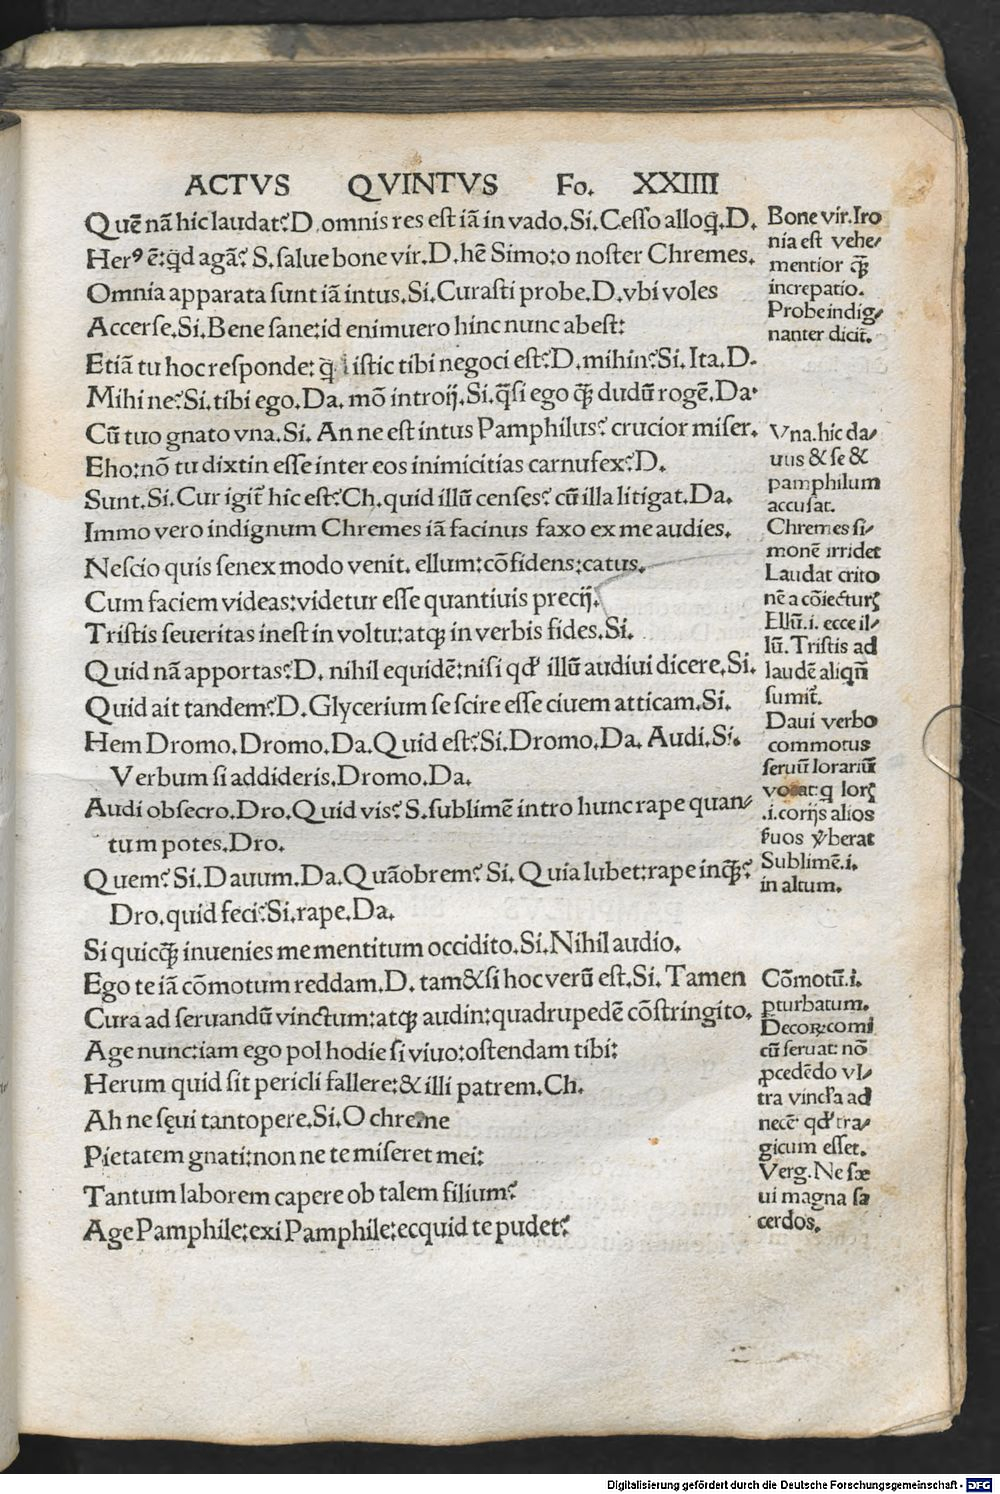 ACTVS QVINTVS Fo. XXIIII
Quē nā hic laudat? D. omnis res est iā in vado. Si. Cesso alloq̄. D.
Herꝰ ē: qd agā? S. salue bone vir. D. hē Simo: o noster Chremes.
Omnia apparata sunt iā intus. Si. Curasti probe. D. vbi voles
Accerse. Si. Bene sane: id enimuero hinc nunc abest:
Etiā tu hoc responde: istic tibi negoci est? D. mihin? Si. Ita. D.
Mihi ne? Si. tibi ego. Da. mō introij. Si. q̄si ego q̄ȝ dudū rogē. Da.
Cū tuo gnato vna. Si. An ne est intus Pamphilus? crucior miser.
Eho: nō tu dixtin esse inter eos inimicitias carnufex? D.
Sunt. Si. Cur igit̄ hic est? Ch. quid illū censes? cū illa litigat. Da.
Immo vero indignum Chremes iā facinus faxo ex me audies.
Nescio quis senex modo venit. ellum: cōfidens: catus.
Cum faciem videas: videtur esse quantiuis precij.
Tristis seueritas inest in voltu: atqȝ in verbis fides. Si.
Quid nā apportas? D. nihil equidē: nisi qd' illū audiui dicere. Si.
Quid ait tandem? D. Glycerium se scire esse ciuem atticam. Si.
Hem Dromo. Dromo. Da. Quid est? Si. Dromo. Da. Audi. Si.
Verbum si addideris. Dromo. Da.
Audi obsecro. Dro. Quid vis? S. sublimē intro hunc rape quan⸗
tum potes. Dro.
Quem? Si. Dauum. Da. Quāobrem? Si. Quia lubet: rape inq̄ȝ?
Dro. quid feci? Si. rape. Da.
Si quicq̄ȝ inuenies me mentitum occidito. Si. Nihil audio.
Ego te iā cōmotum reddam. D. tam&si hoc verū est. Si. Tamen
Cura ad seruandū vinctum: atqȝ audin: quadrupedē cōstringito.
Age nunc: iam ego pol hodie si viuo: ostendam tibi:
Herum quid sit pericli fallere: & illi patrem. Ch.
Ah ne sęui tantopere. Si. O chreme
Pietatem gnati: non ne te miseret mei:
Tantum laborem capere ob talem filium?
Age Pamphile: exi Pamphile: ecquid te pudet?
Bone vir. Iro
nia est vehe⸗
mentior q̄ȝ
increpatio.
Probe indig⸗
nanter dicit̄.
Vna. hic da⸗
uus & se &
pamphilum
accusat.
Chremes si⸗
monē irridet
Laudat crito
nē a cōiecturꝭ
Ellū. i. ecce il⸗
lū. Tristis ad
laudē aliqn̄
sumit̄.
Daui verbo
commotus
seruū lorariū
vocat: q lorꝭ
.i. corijs alios
v̄berat
Sublimē. i.
in altum.
Cōmotū. i.
ꝑturbatum.
Decoꝝ: comi
cū seruat: nō
ꝓcedēdo vl⸗
tra vincl'a ad
necē qd' tra⸗
gicum esset.
Verg. Ne sæ
ui magna sa
cerdos.
Digitalisierung gefördert durch die Deutsche Forschungsgemeinschaft - DFG